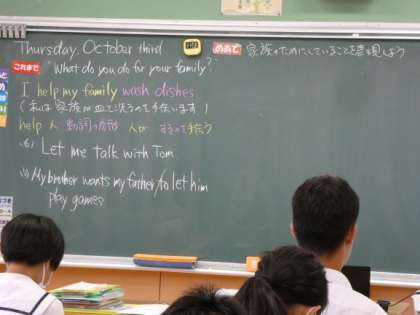 Thursday, October third
めあて 家族のためにしていることを表現しよう
これまで "What do you do for your family?"
I help my family wash dishes.
(私は家族が皿を洗うのを手伝います)
help 人 動詞の原形 人が するのを手伝う
Let me talk with Tom
My brother wants my father to let him
play games